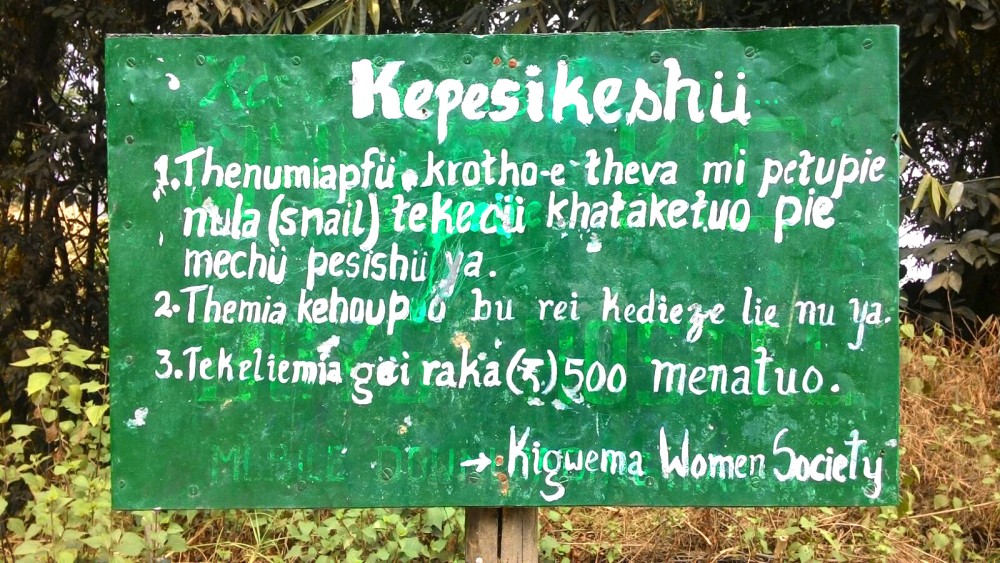 Kepesikeshü
1. Thenumiapfü, krotho-e theva mi petupie
nula (snail) tekedü khataketuo pie
mechü pesishü ya.
2. Themia kehoupuo bu rei kedieze lie nu ya.
3. Tekeliemia gei raka (₹) 500 menatuo.
→ Kigwema Women Society